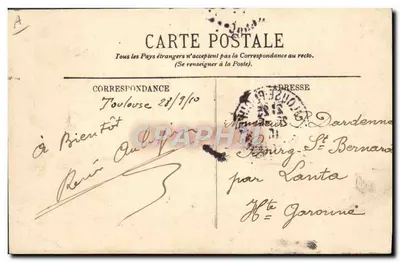 CARTE POSTALE
Tous les Pays étrangers n'acceptent pas la Correspondance au recto.
(Se renseigner à la Poste).
CORRESPONDANCE
ADRESSE
Toulouse 28/9/10
À Bientôt
René
Monsieur P. Dardenne
Bourg-St Bernard
par Lanta
Hte Garonne